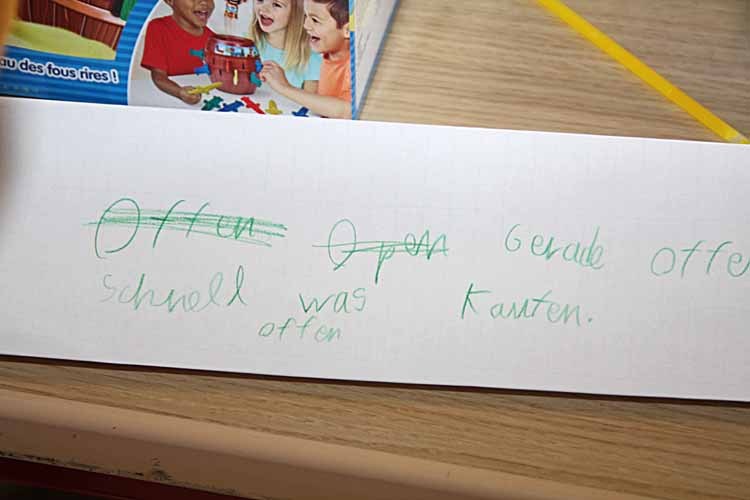 au des fous rires !
Offen Open Gerade offe
Schnell was Kauten.
offen